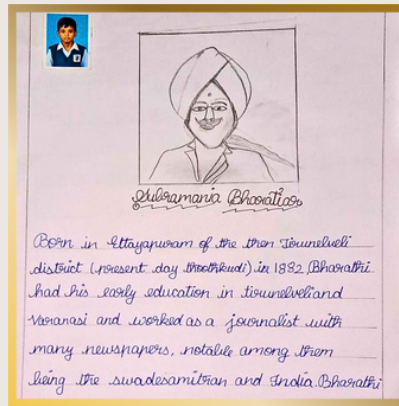 Subramania Bharatiar
Born in Ettayapuram of the then Tirunelveli
district (present day thoothkudi) in 1882, Bharathi
had his early education in tirunelveli and
Varanasi and worked as a journalist with
many newspapers, notable among them
being the swadesamitran and India. Bharathi